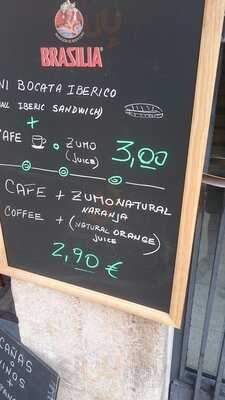 BRASILIA
NI BOCATA IBERICO
IBERIC SANDWICH)
+
CAFE o ZUMO
(JUICE)
3,00
CAFE + ZUMO NATURAL
NARANJA
COFFEE + (NATURAL ORANGE
JUICE)
2,90 €
CAÑAS
O
VINOS
+